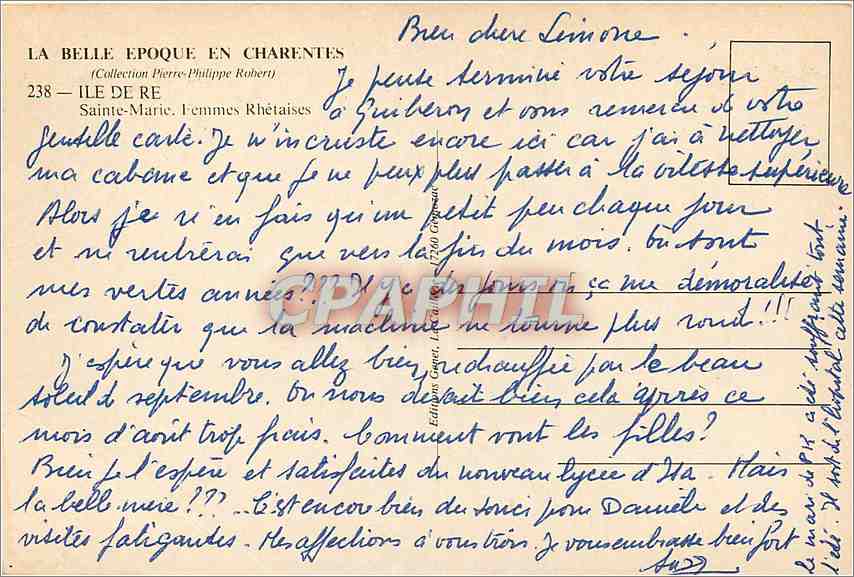 Bien chere Simone.
LA BELLE EPOQUE EN CHARENTES
(Collection Pierre-Philippe Robert)
238 — ILE DE RE
Sainte-Marie. Femmes Rhétaises
Je pense terminé votre séjour
à Quiberon et vous remercie de votre
gentille carte. Je m'incruste encore ici car j'ai à nettoyer
ma cabane et que je ne peux plus passer à la vitesse supérieure
Alors je n'en fais qu'un petit peu chaque jour
et ne rentrerai que vers la fin du mois. Où sont
mes vertes années??? Il y a des jours où ça me démoralise
de constater que la machine ne tourne plus rond!!!
J'espère que vous allez bien, réchauffée par le beau
soleil de septembre. On nous devait bien cela après ce
mois d'août trop frais. Comment vont les filles?
Bien je l'espère et satisfaites du nouveau lycée d'Isa. Mais
la belle-mère??? .. C'est encore bien du souci pour Danièle et des
visites fatigantes. Mes affections à vous trois. Je vous embrasse bien fort
Le mari de PK a été souffrant tout
l'été. Il sort de l'hôpital cette semaine.
Editions Genet, 17260 Gémozac
CPAPHIL